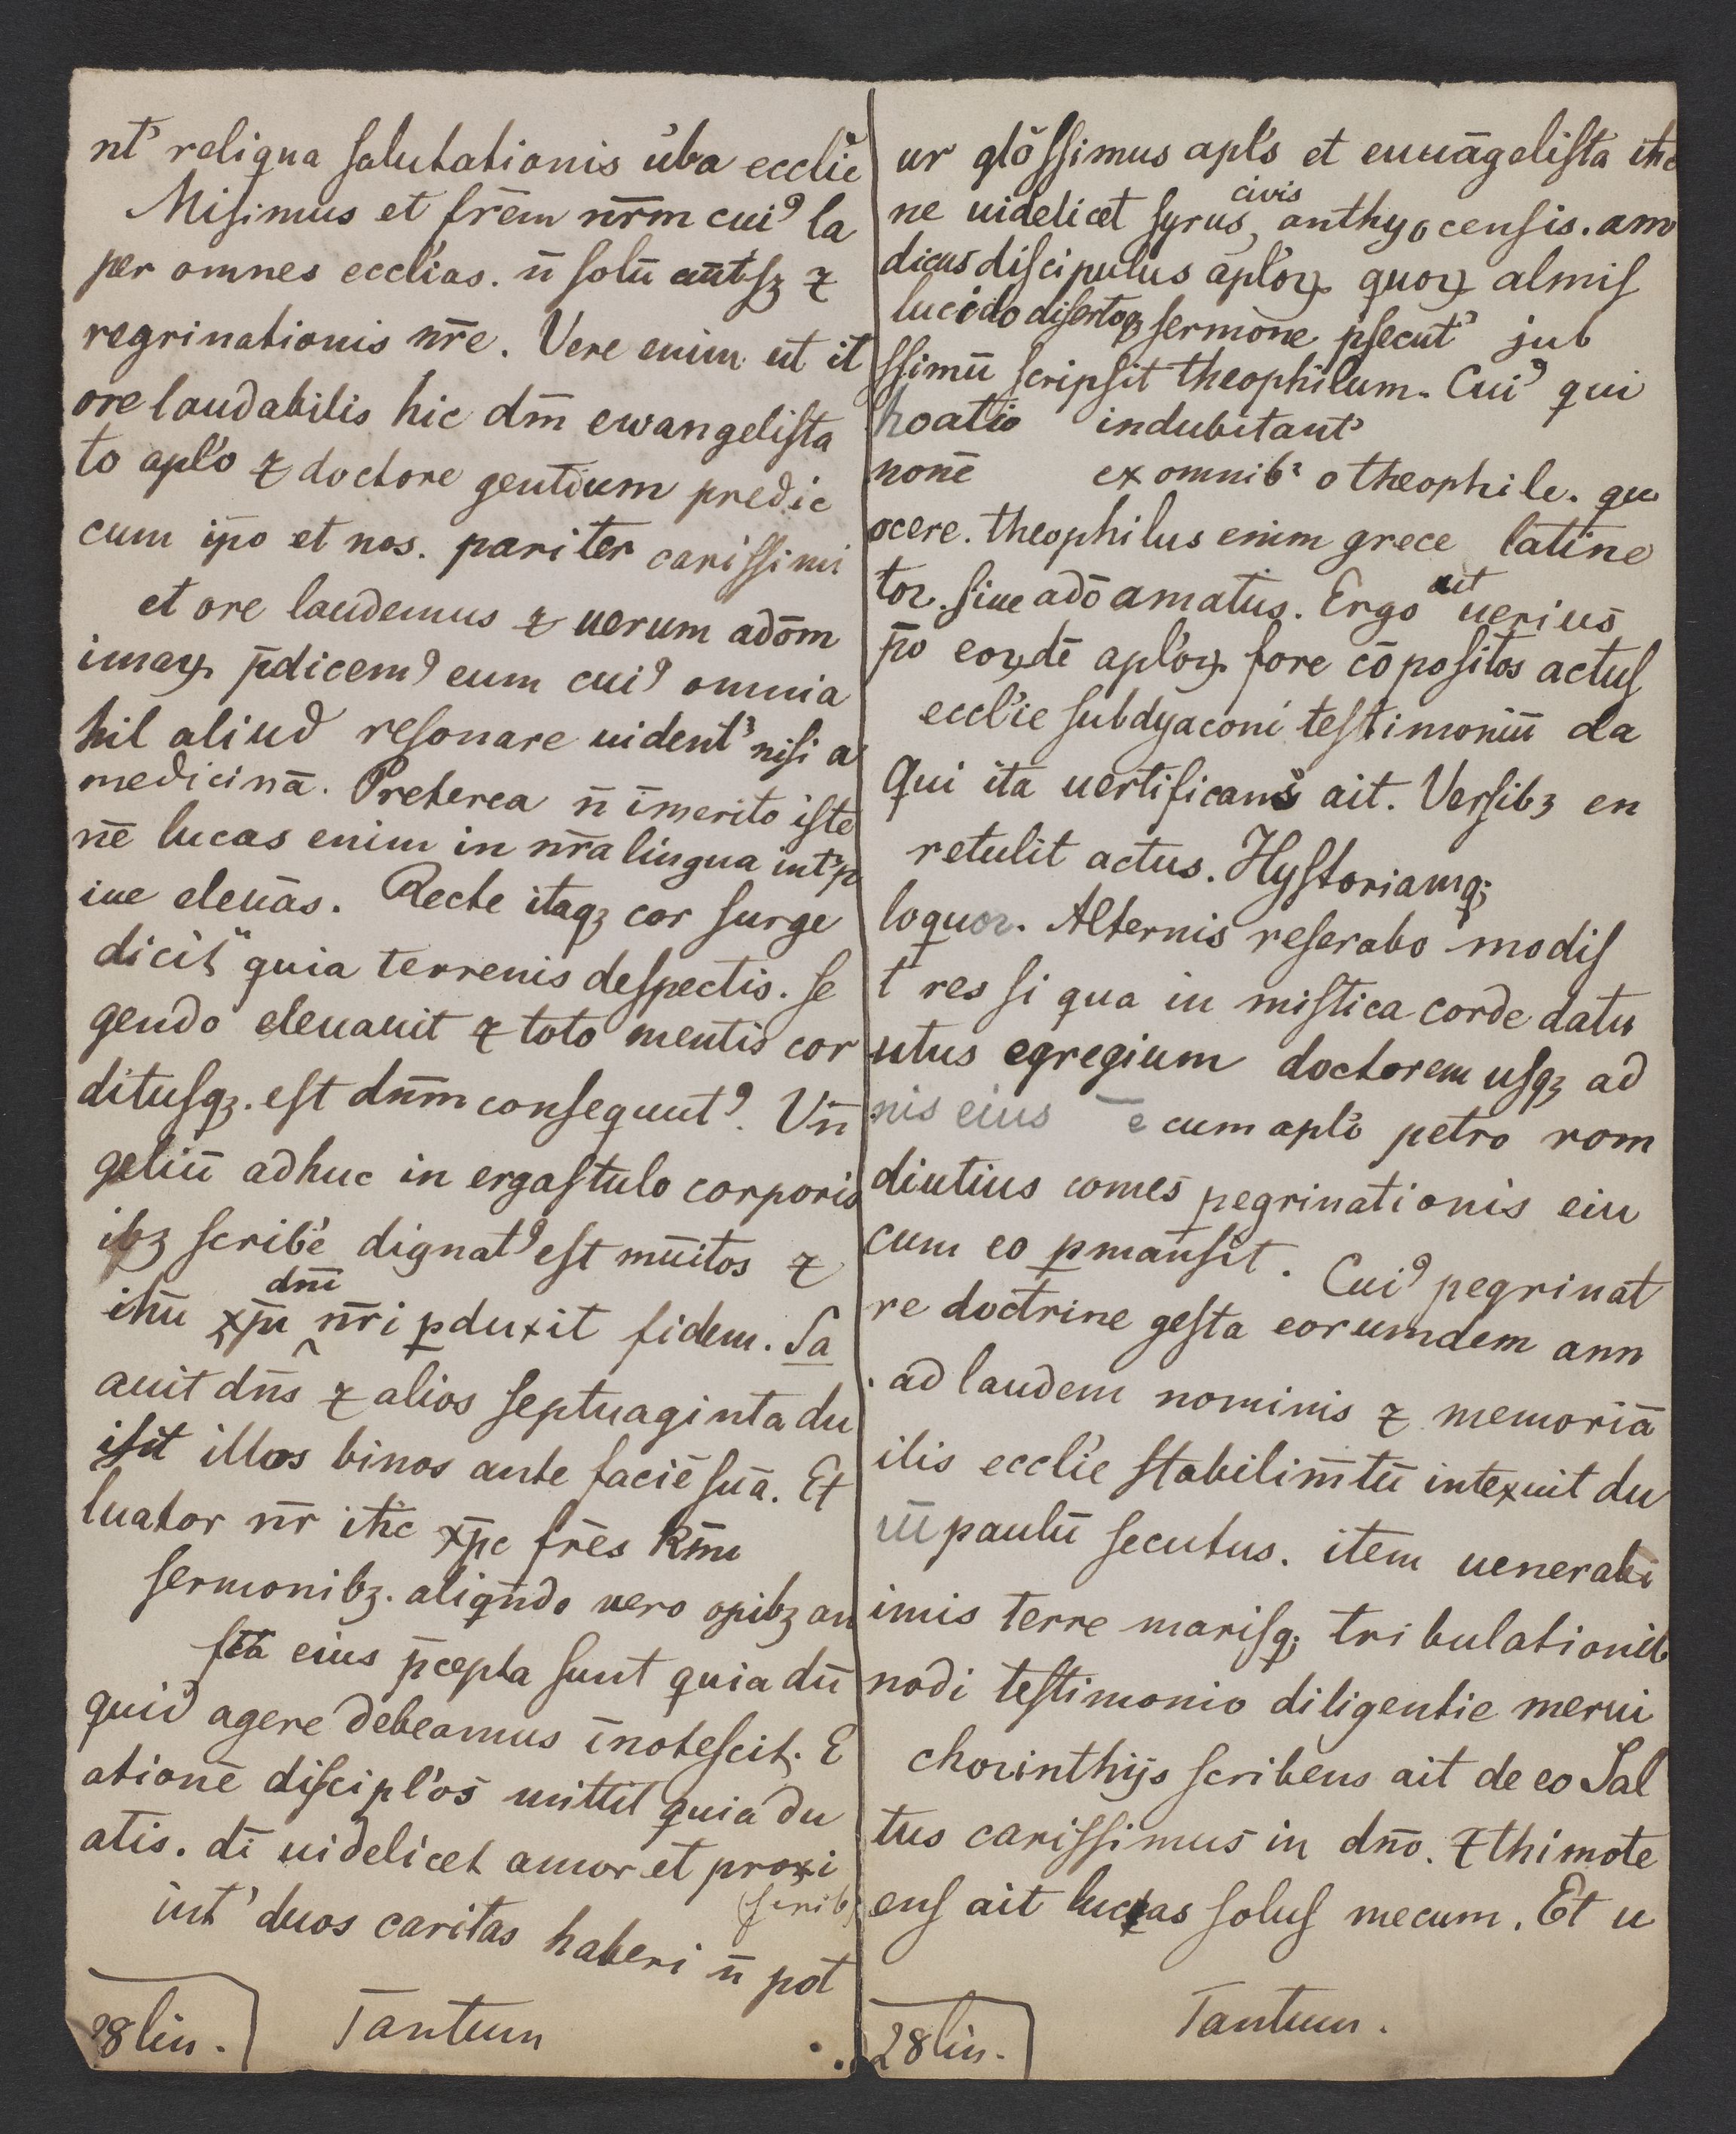 nt᾽ reliqua ſalutationis u᾽ba ecclie
Miſimus et fr̄em nr̄m cui⁹ la
per omnes ecclias. n̄ ſolū aūt ſꝫ ⁊
regrinationis nr̄e. Vere enim ut it
ore laudabilis hic dm̄ ewangeliſta
to apl'o ⁊ doctore gentium predic
cum ip̄o et nos. pariter cariſſimi
et ore laudemus ⁊ uerum adōm
imaꝝ p̄dicem⁹ eum cui⁹ omnia
hil aliud reſonare uident᾽ niſi a
medicinā. Preterea n̄ īmerito iſte
nē lucas enim in nr̄a lingua int᾽p
iue eleuās. Recte itaqꝫ cor ſurge
dicit" quia terrenis deſpectis. ſe
gendo eleuauit ⁊ toto mentis cor
dituſqꝫ. eſt dnm̄ conſequut⁹. Vn̄
geliū adhuc in ergaſtulo corporis
ibꝫ ſcribe᾽ dignat⁹ eſt mūitos ⁊
ihū xp̄i dn̄i nr̄i ꝑduxit fidem. Sa
auit dn̄s ⁊ alios ſeptuaginta du
iſit illos binos ante faciē ſuā. Et
luator nr̄ ih̄c xp̄c fr̄es km̄i
ſermonibꝫ. aliqn̄do vero opibꝫ an
ſc̄a eius p̄cepta ſunt quia dū
quid agere debeamus īnoteſcit. E
ationē diſcipl'os mittit quia du
atis. dī uidelicet amor et proxi
(ſcrib)
int᾽ duos caritas haberi n̄ pot
28 lin. Tantum
ur glōſſimus apl's et euuāgeliſta ihc
ne uidelicet ſyrus, civis anthyocenſis. am
dicus diſcipulus apl'oꝝ quoꝝ almiſ
lucido diſertoqꝫ ſermone pſecut᾽ jub
ſſimū ſcripſit theophilum. Cui⁹ qui
hoatio indubitant᾽
nonē ex omnib᾽ o theophile. qu
ocere. theophilus enim grece latine
tor. ſiue adō amatus. Ergo aut uerius
p̄o eoꝝdē apl'oꝝ fore cōpoſitos actuſ
eccl'ie ſubdyaconi teſtimoniū da
Qui ita uertificans ait. Verſibꝫ en
retulit actus. Hyſtoriamq;
loquor. Alternis reſerabo modiſ
t res ſi qua in miſtica corde datu
utus egregium doctorem uſqꝫ ad
nis eius ē cum apl'o petro rom
diutius comes pegrinationis eiu
cum eo ꝑmanſit. Cui⁹ pegrinat
re doctrine geſta eorumdem ann
. ad laudem nominis ⁊ memoriā
ilis eccl'ie ſtabilim̄tū intexuit du
ūi paulū ſecutus. item uenerabi
imis terre mariſq; tribulationib
nodi teſtimonio diligentie merui
chorinthijs ſcribens ait de eo Sal
tus cariſſimus in dn̄o. ⁊ thimote
enſ ait lucas ſoluſ mecum. Et u
28 lin. Tantum.